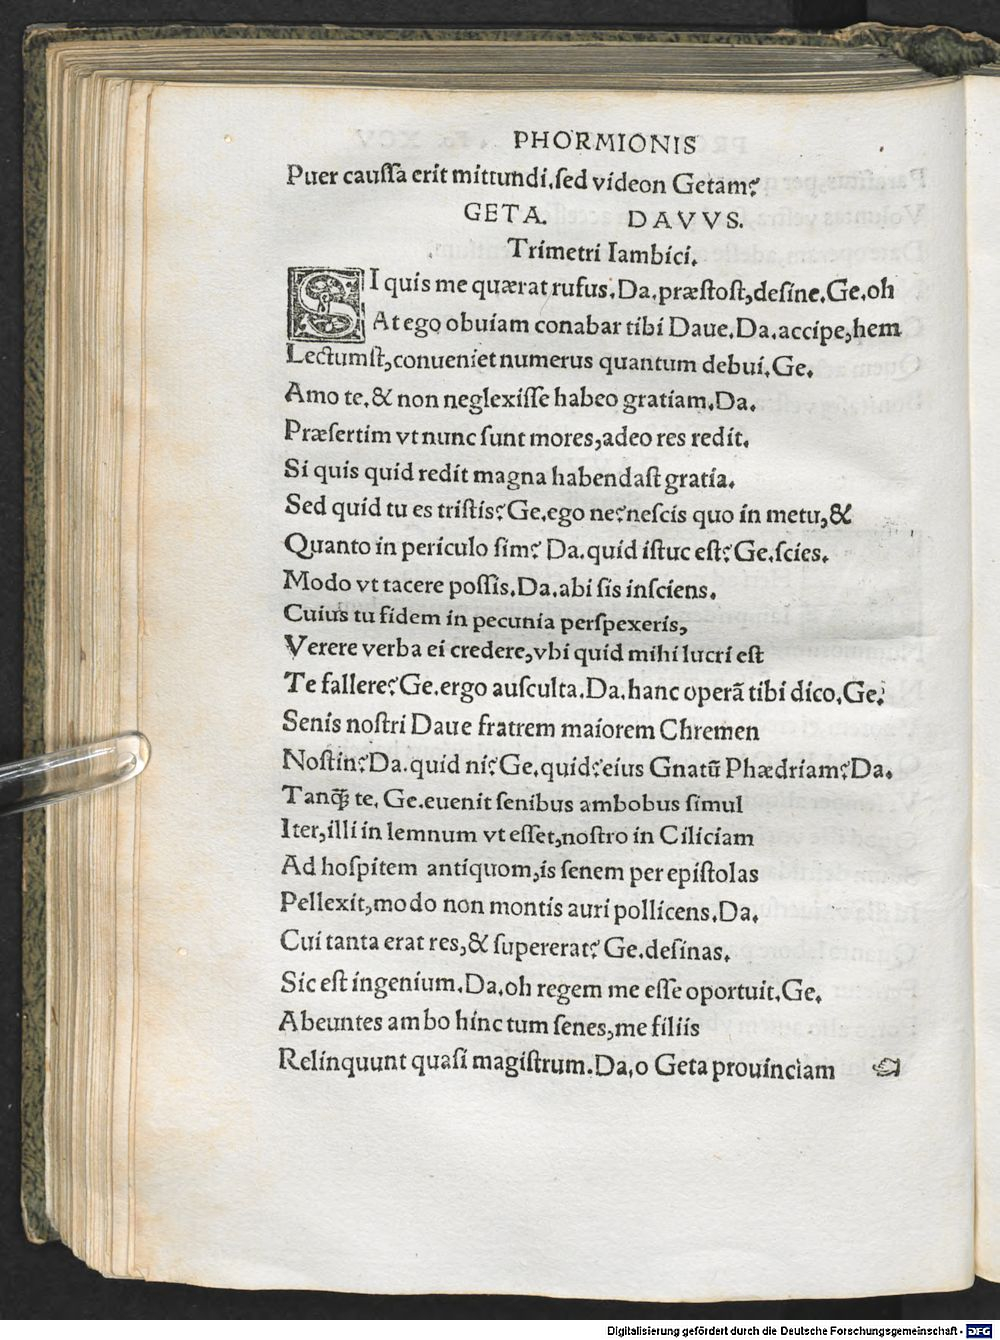 PHORMIONIS
Puer caussa erit mittundi.sed videon Getam?
GETA. DAVVS.
Trimetri Iambici.
SI quis me quærat rufus.Da.præstost,desine.Ge.oh
At ego obuiam conabar tibi Daue.Da.accipe,hem
Lectumst,conueniet numerus quantum debui.Ge.
Amo te.& non neglexisse habeo gratiam.Da.
Præsertim vt nunc sunt mores,adeo res redit.
Si quis quid redit magna habendast gratia.
Sed quid tu es tristis?Ge.ego ne?nescis quo in metu,&
Quanto in periculo sim? Da.quid istuc est?Ge.scies.
Modo vt tacere possis.Da.abi sis insciens.
Cuius tu fidem in pecunia perspexeris,
Verere verba ei credere,vbi quid mihi lucri est
Te fallere?Ge.ergo ausculta.Da.hanc operā tibi dico.Ge.
Senis nostri Daue fratrem maiorem Chremen
Nostin?Da.quid ni?Ge.quid?eius Gnatū Phædriam?Da.
Tanꝗ̃ te. Ge.euenit senibus ambobus simul
Iter,illi in lemnum vt esset,nostro in Ciliciam
Ad hospitem antiquom,is senem per epistolas
Pellexit,modo non montis auri pollicens.Da.
Cui tanta erat res,& supererat? Ge.desinas.
Sic est ingenium.Da.oh regem me esse oportuit.Ge.
Abeuntes ambo hinc tum senes,me filiis
Relinquunt quasi magistrum.Da.o Geta prouinciam
Digitalisierung gefördert durch die Deutsche Forschungsgemeinschaft - DFG